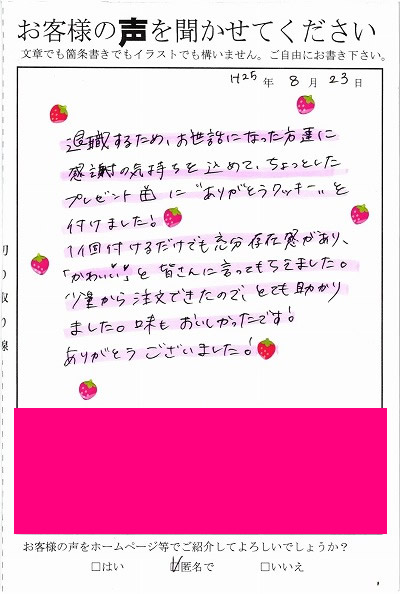 お客様の声を聞かせてください
文章でも箇条書きでもイラストでも構いません。ご自由にお書き下さい。
H25 年 8 月 23 日
退職するため、お世話になった方達に
感謝の気持ちを込めて、ちょっとした
プレゼントに“ありがとうクッキー”を
付けました!
1個付けるだけでも充分存在感があり、
「かわいい」と皆さんに言ってもらえました。
少量から注文できたので、とても助かり
ました。味もおいしかったです!
ありがとうございました!
切り取り線
お客様の声をホームページ等でご紹介してよろしいでしょうか?
□はい ☑匿名で □いいえ